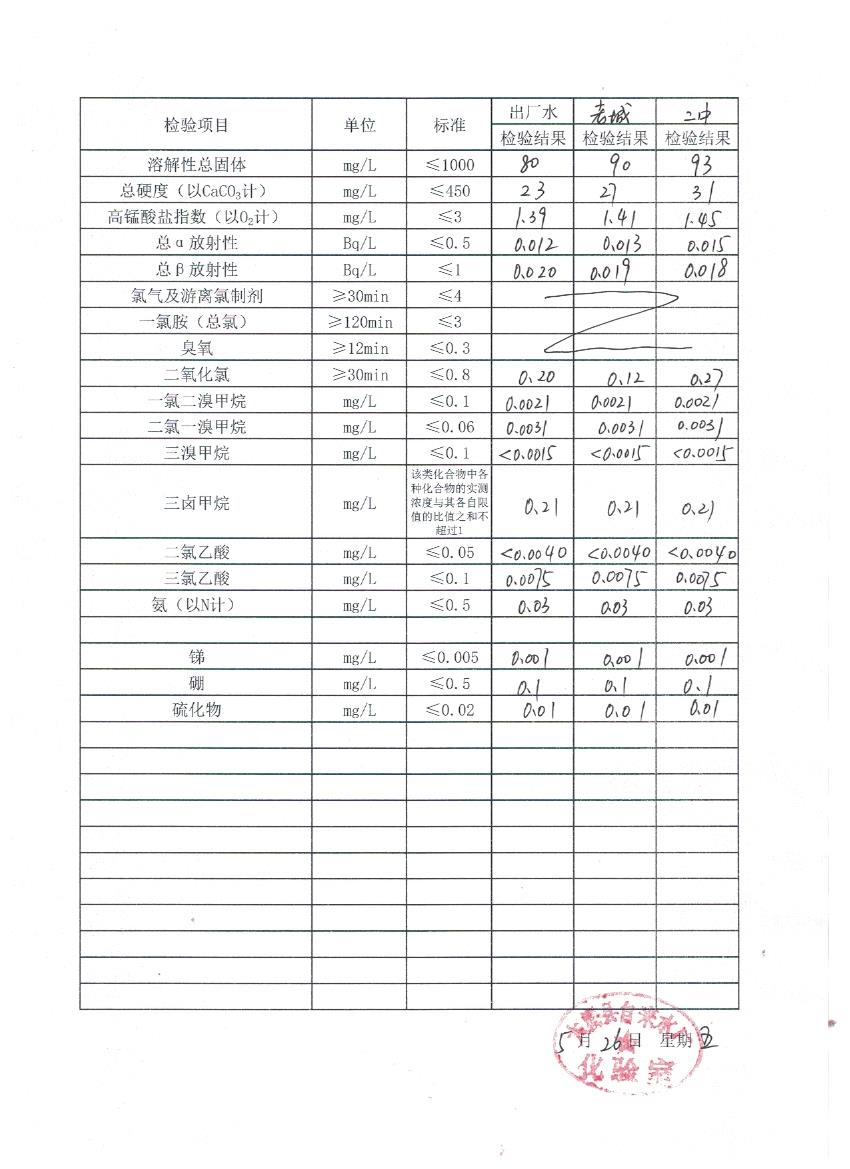 检验项目 单位 标准 出厂水 老城 二中
检验结果 检验结果 检验结果
溶解性总固体 mg/L ≤1000 80 90 93
总硬度（以CaCO₃计） mg/L ≤450 23 27 31
高锰酸盐指数（以O₂计） mg/L ≤3 1.39 1.41 1.45
总α放射性 Bq/L ≤0.5 0.012 0.013 0.015
总β放射性 Bq/L ≤1 0.020 0.019 0.018
氯气及游离氯制剂 ≥30min ≤4
一氯胺（总氯） ≥120min ≤3
臭氧 ≥12min ≤0.3
二氧化氯 ≥30min ≤0.8 0.20 0.12 0.27
一氯二溴甲烷 mg/L ≤0.1 0.0021 0.0021 0.0021
二氯一溴甲烷 mg/L ≤0.06 0.0031 0.0031 0.0031
三溴甲烷 mg/L ≤0.1 <0.0015 <0.0015 <0.0015
三卤甲烷 mg/L 该类化合物中各
种化合物的实测
浓度与其各自限
值的比值之和不
超过1 0.21 0.21 0.21
二氯乙酸 mg/L ≤0.05 <0.0040 <0.0040 <0.0040
三氯乙酸 mg/L ≤0.1 0.0075 0.0075 0.0075
氨（以N计） mg/L ≤0.5 0.03 0.03 0.03
锑 mg/L ≤0.005 0.001 0.001 0.001
硼 mg/L ≤0.5 0.1 0.1 0.1
硫化物 mg/L ≤0.02 0.01 0.01 0.01
县自来水
5月26日 星期五
化验室